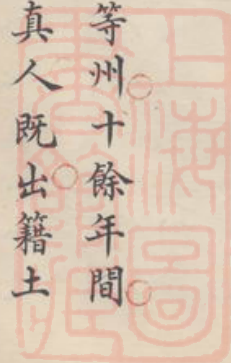 等州十餘年間
真人既出籍土
上海圖
書館藏